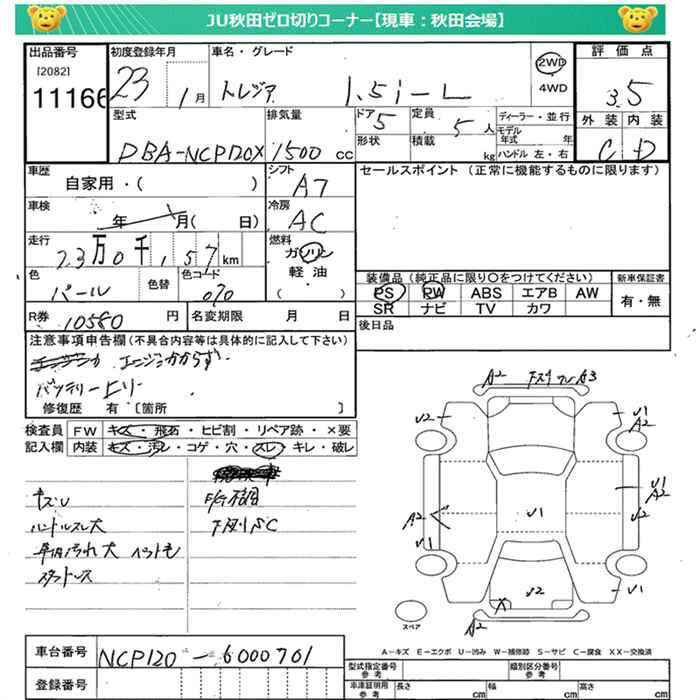 JU秋田ゼロ切りコーナー【現車：秋田会場】
出品番号 初度登録年月 車名・グレード 評価点
[2082]
11166
23 1月 トレジア 1.5i-L 2WD 4WD 3.5
外装 内装
C D
型式 排気量 ドア 定員 ディーラー・並行
DBA-NCP120X 1500cc 5 5人 モデル年式 年
形状 積載 kg ハンドル 左・右
車歴 シフト セールスポイント（正常に機能するものに限ります）
自家用・( ) A7
車検 冷房
年 月( 日) AC
走行 燃料
23万0千157km ガソリン
軽油
( )
色 色替 色コード
パール 070
装備品（純正品に限り○をつけてください） 新車保証書
PS PW ABS エアB AW 有・無
SR ナビ TV カワ
R券 10580円 名変期限 月 日 後日品
注意事項申告欄（不具合内容等は具体的に記入して下さい）
エンジンかからず
バッテリー
修復歴 有〔箇所 〕
検査員 FW キズ・飛石・ヒビ割・リペア跡・×要
記入欄 内装 キズ・汚レ・コゲ・穴・スレ・キレ・破レ
キズU
ハンドルスレ大
下廻りSC
A2 A3
U2 U1
A2
U1
A2
A2 U1 U2
U1
U2 U1
X
A2
スペア
A－キズ E－エクボ U－凹み W－補修跡 S－サビ C－腐食 XX－交換済
車台番号 NCP120-6000701
型式指定番号 参考 類別区分番号 参考
登録番号 車庫証明用 参考 長さ cm 幅 cm 高さ cm